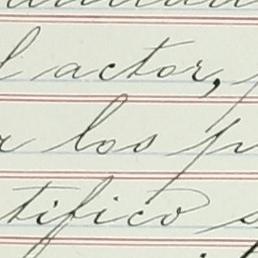 l actor,
los p
tifico s